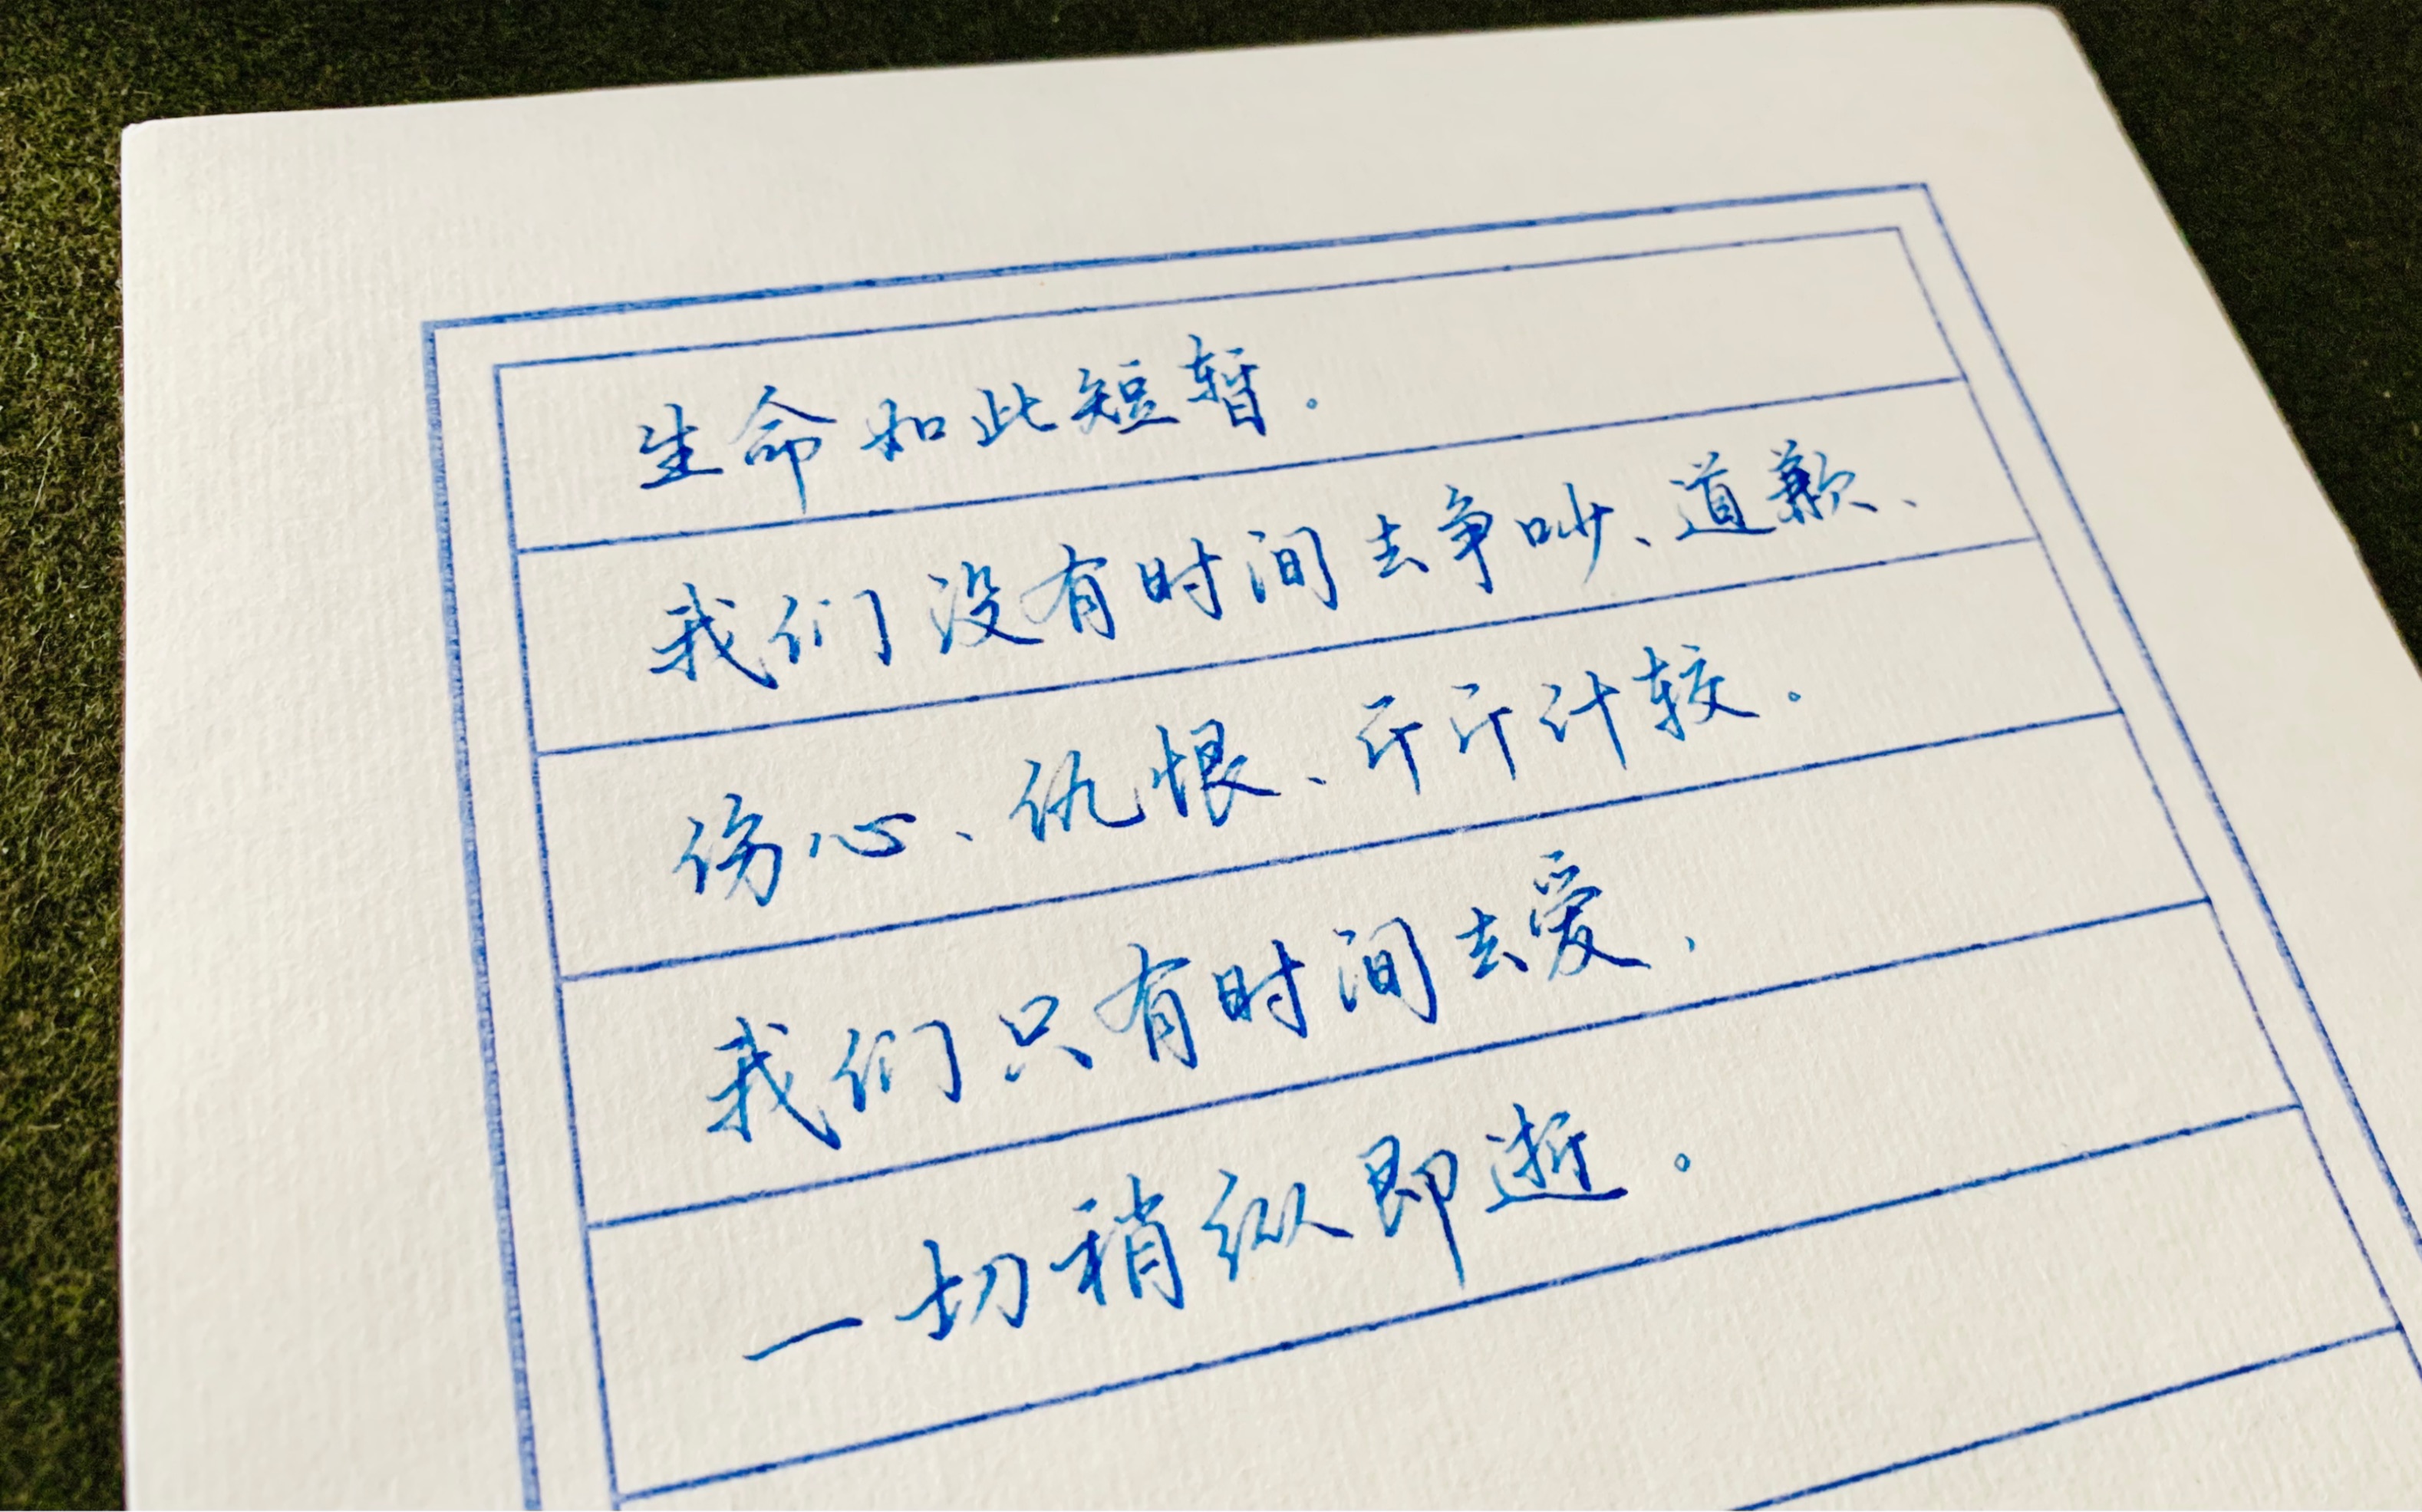 生命如此短暂.
我们没有时间去争吵、道歉、
伤心、仇恨、斤斤计较.
我们只有时间去爱,
一切稍纵即逝。